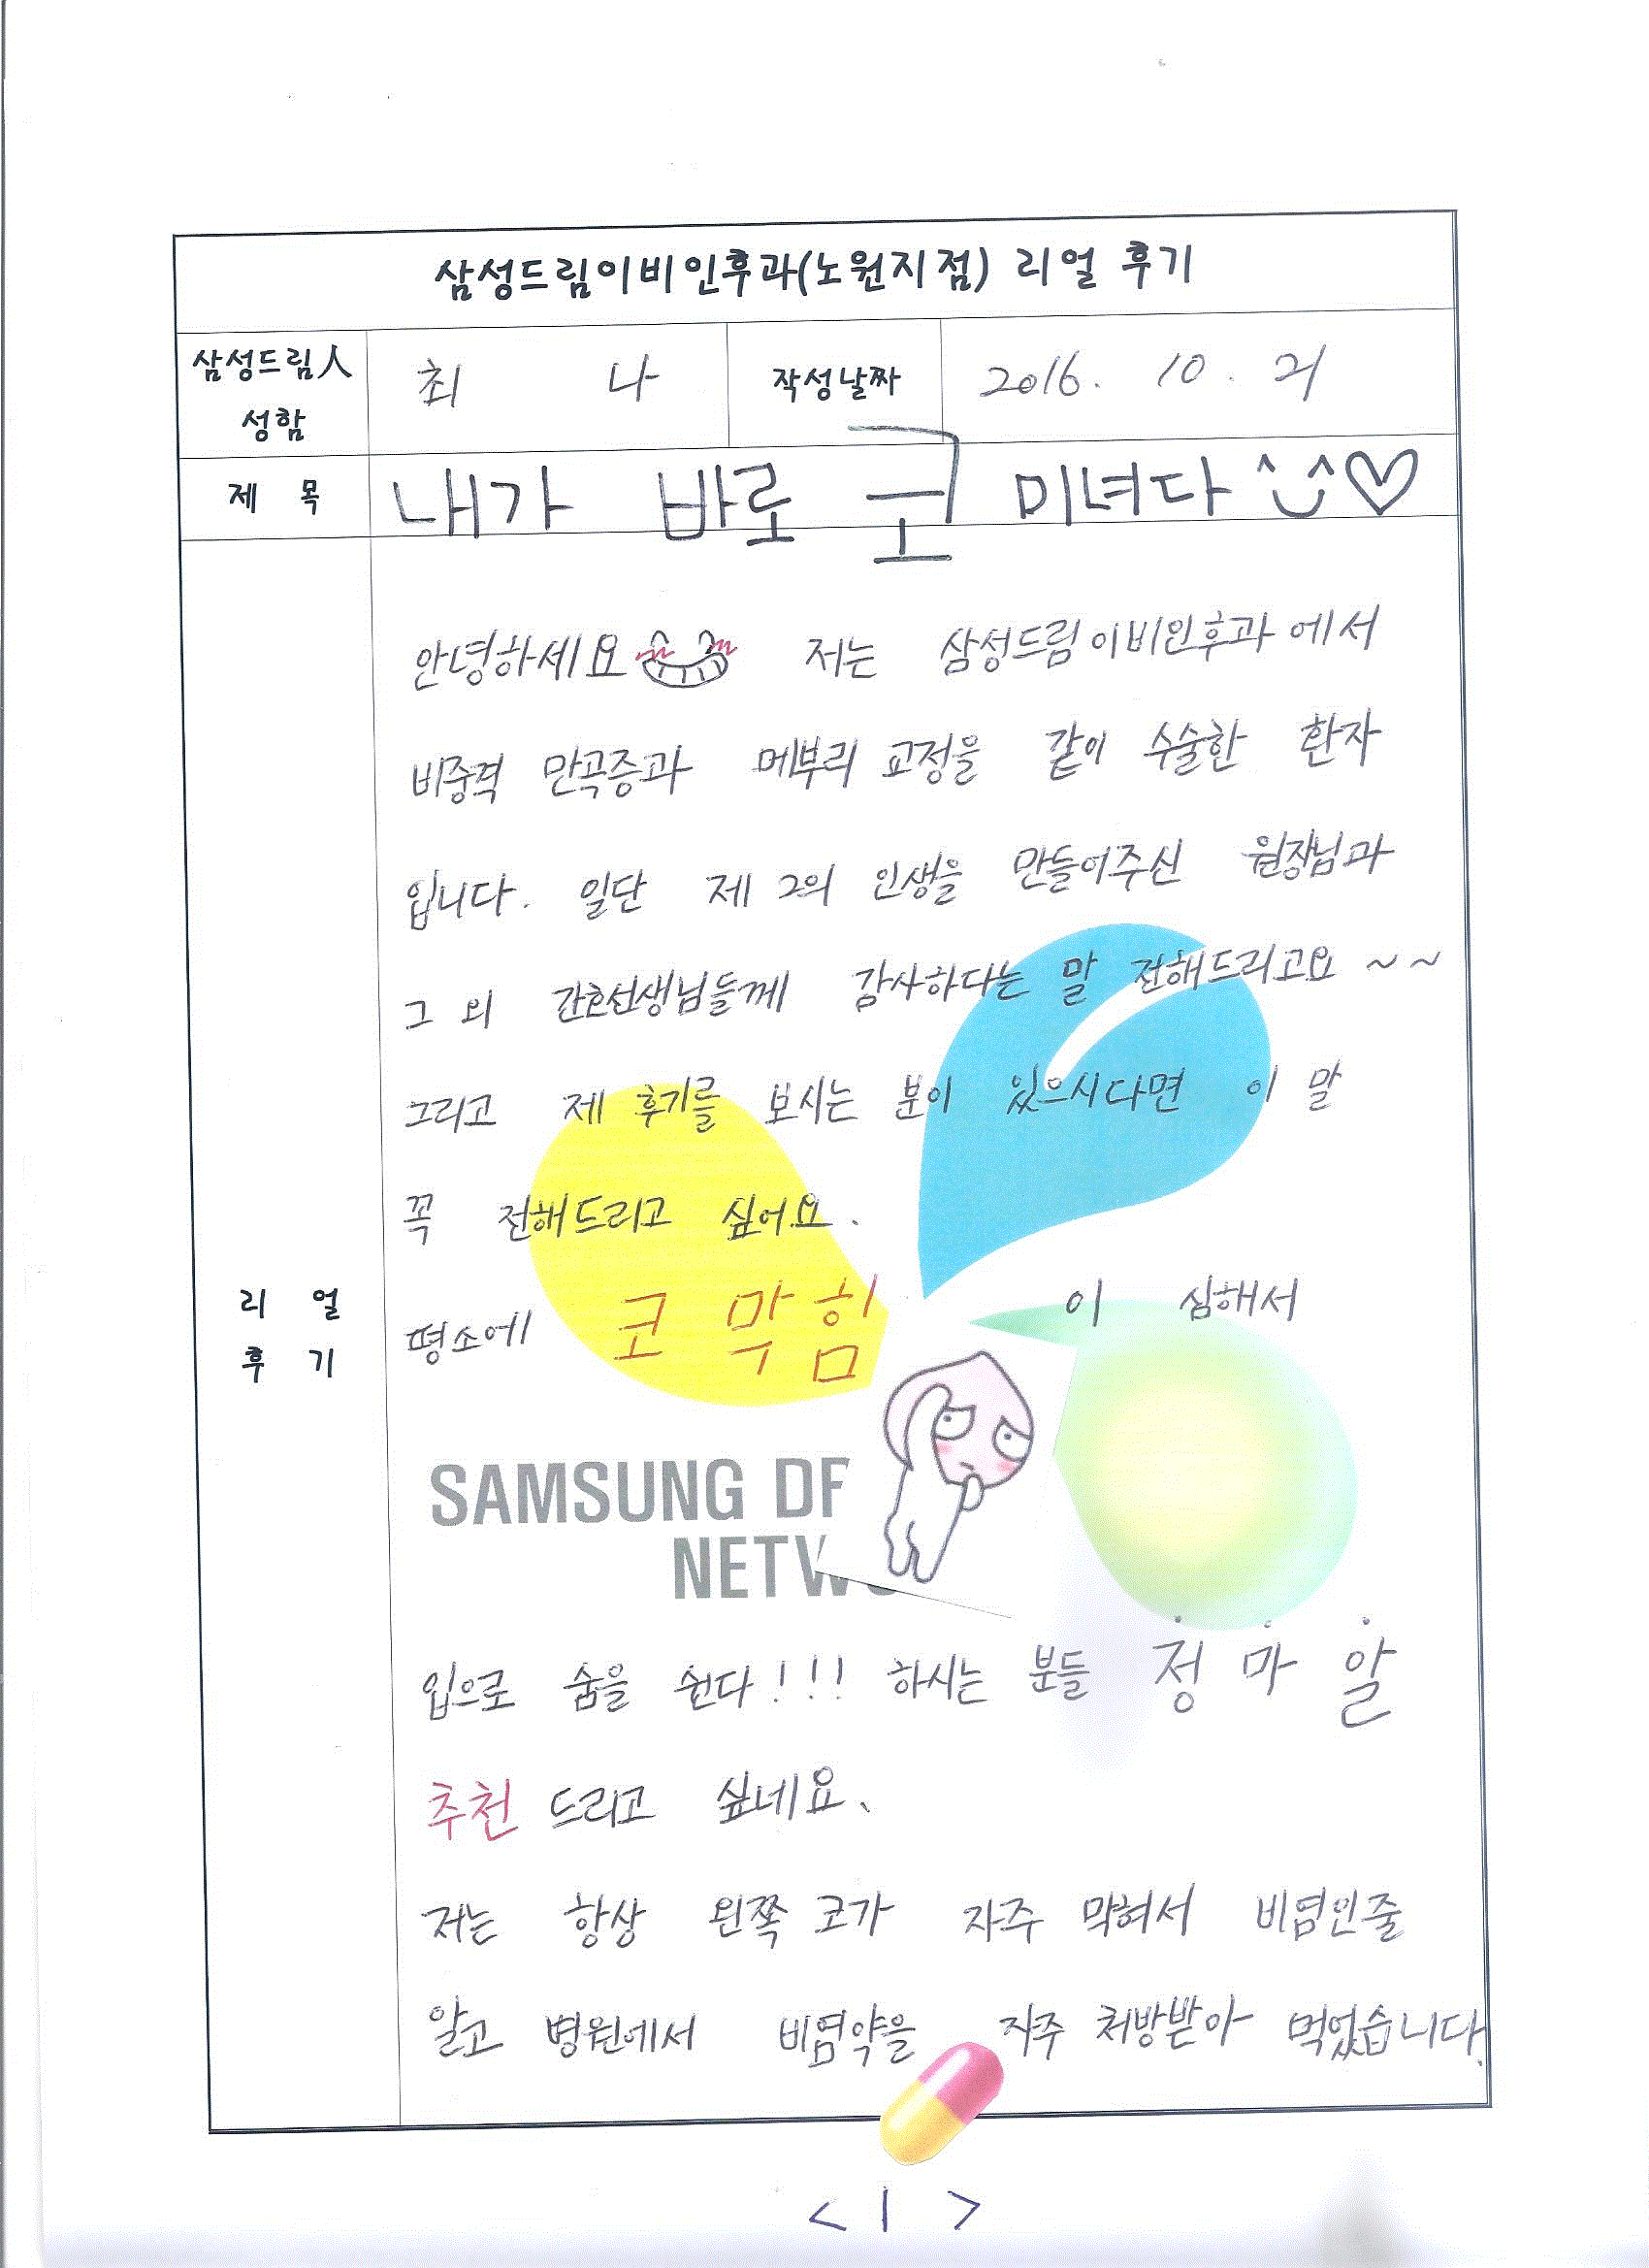 삼성드림이비인후과(노원지점) 리얼 후기
삼성드림人 성함
최 나
작성날짜
2016. 10. 21
제 목
내가 바로 코 미녀다
리 얼 후 기
안녕하세요 저는 삼성드림이비인후과에서
비중격 만곡증과 메부리 교정을 같이 수술한 환자
입니다. 일단 제 2의 인생을 만들어주신 원장님과
그 외 간호선생님들께 감사하다는 말 전해드리고요 ~~
그리고 제 후기를 보시는 분이 있으시다면 이 말
꼭 전해드리고 싶어요.
평소에 코 막힘 이 심해서
SAMSUNG DR
NETWO
입으로 숨을 쉰다!!! 하시는 분들 정 마 알
추천 드리고 싶네요.
저는 항상 왼쪽 코가 자주 막혀서 비염인줄
알고 병원에서 비염약을 자주 처방받아 먹었습니다.
< 1 >